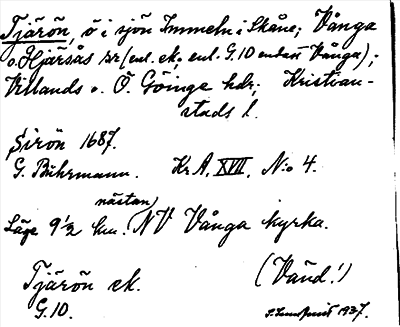 Tjärön, ö i sjön Immeln i Skåne; Vånga
o. Hjärsås sr (enl. ek; enl. G.10 endast Vånga);
Villands o. Ö. Göinge hdr; Kristian-
stads l.
Sirön 1687.
G. Buhrmann. Kr.A. XVII, N:o 4.
nästan
Läge 9½ km. NV Vånga kyrka.
Tjärön ek. (Vänd!)
G.10. 1937.